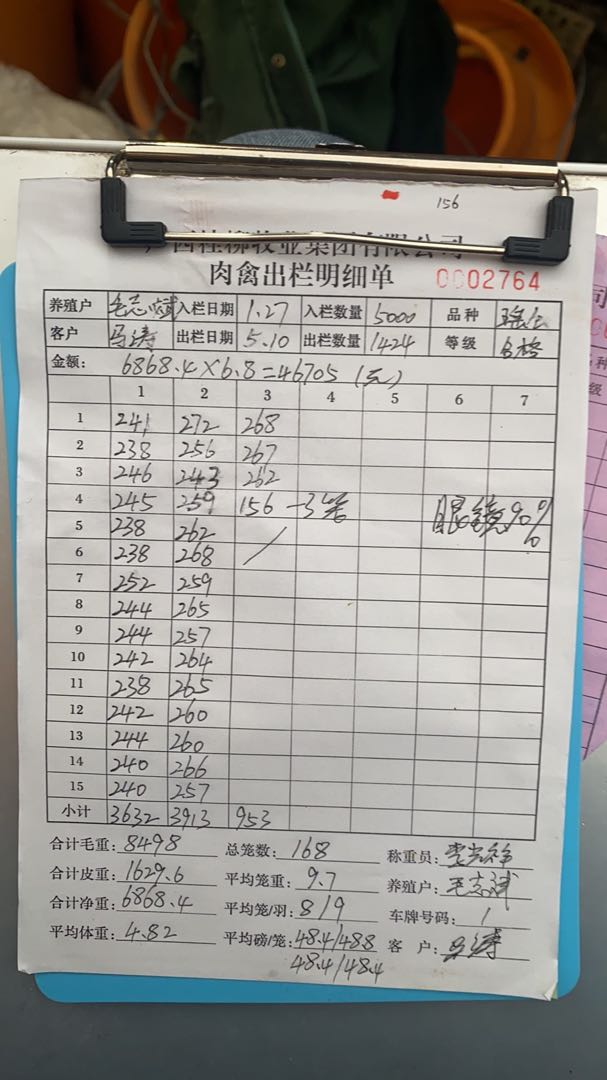 156
西桂柳牧业集团有限公司
肉禽出栏明细单 0002764
养殖户 毛志斌 入栏日期 1.27 入栏数量 5000 品种
客户 马涛 出栏日期 5.10 出栏数量 1424 等级 合格
金额: 6868.4×6.8=46705(元)
1 2 3 4 5 6 7
1 241 272 268
2 238 256 267
3 246 243 262
4 245 259 156 -3笼 眼镜90%
5 238 262 /
6 238 268
7 252 259
8 244 265
9 244 257
10 242 264
11 238 265
12 242 260
13 244 260
14 240 266
15 240 257
小计 3632 3913 953
合计毛重: 8498 总笼数: 168 称重员:
合计皮重: 1629.6 平均笼重: 9.7 养殖户: 毛志斌
合计净重: 6868.4 平均笼/羽: 8/9 车牌号码: /
平均体重: 4.82 平均磅/笼: 48.4/48.8 客 户: 马涛
48.4/48.4